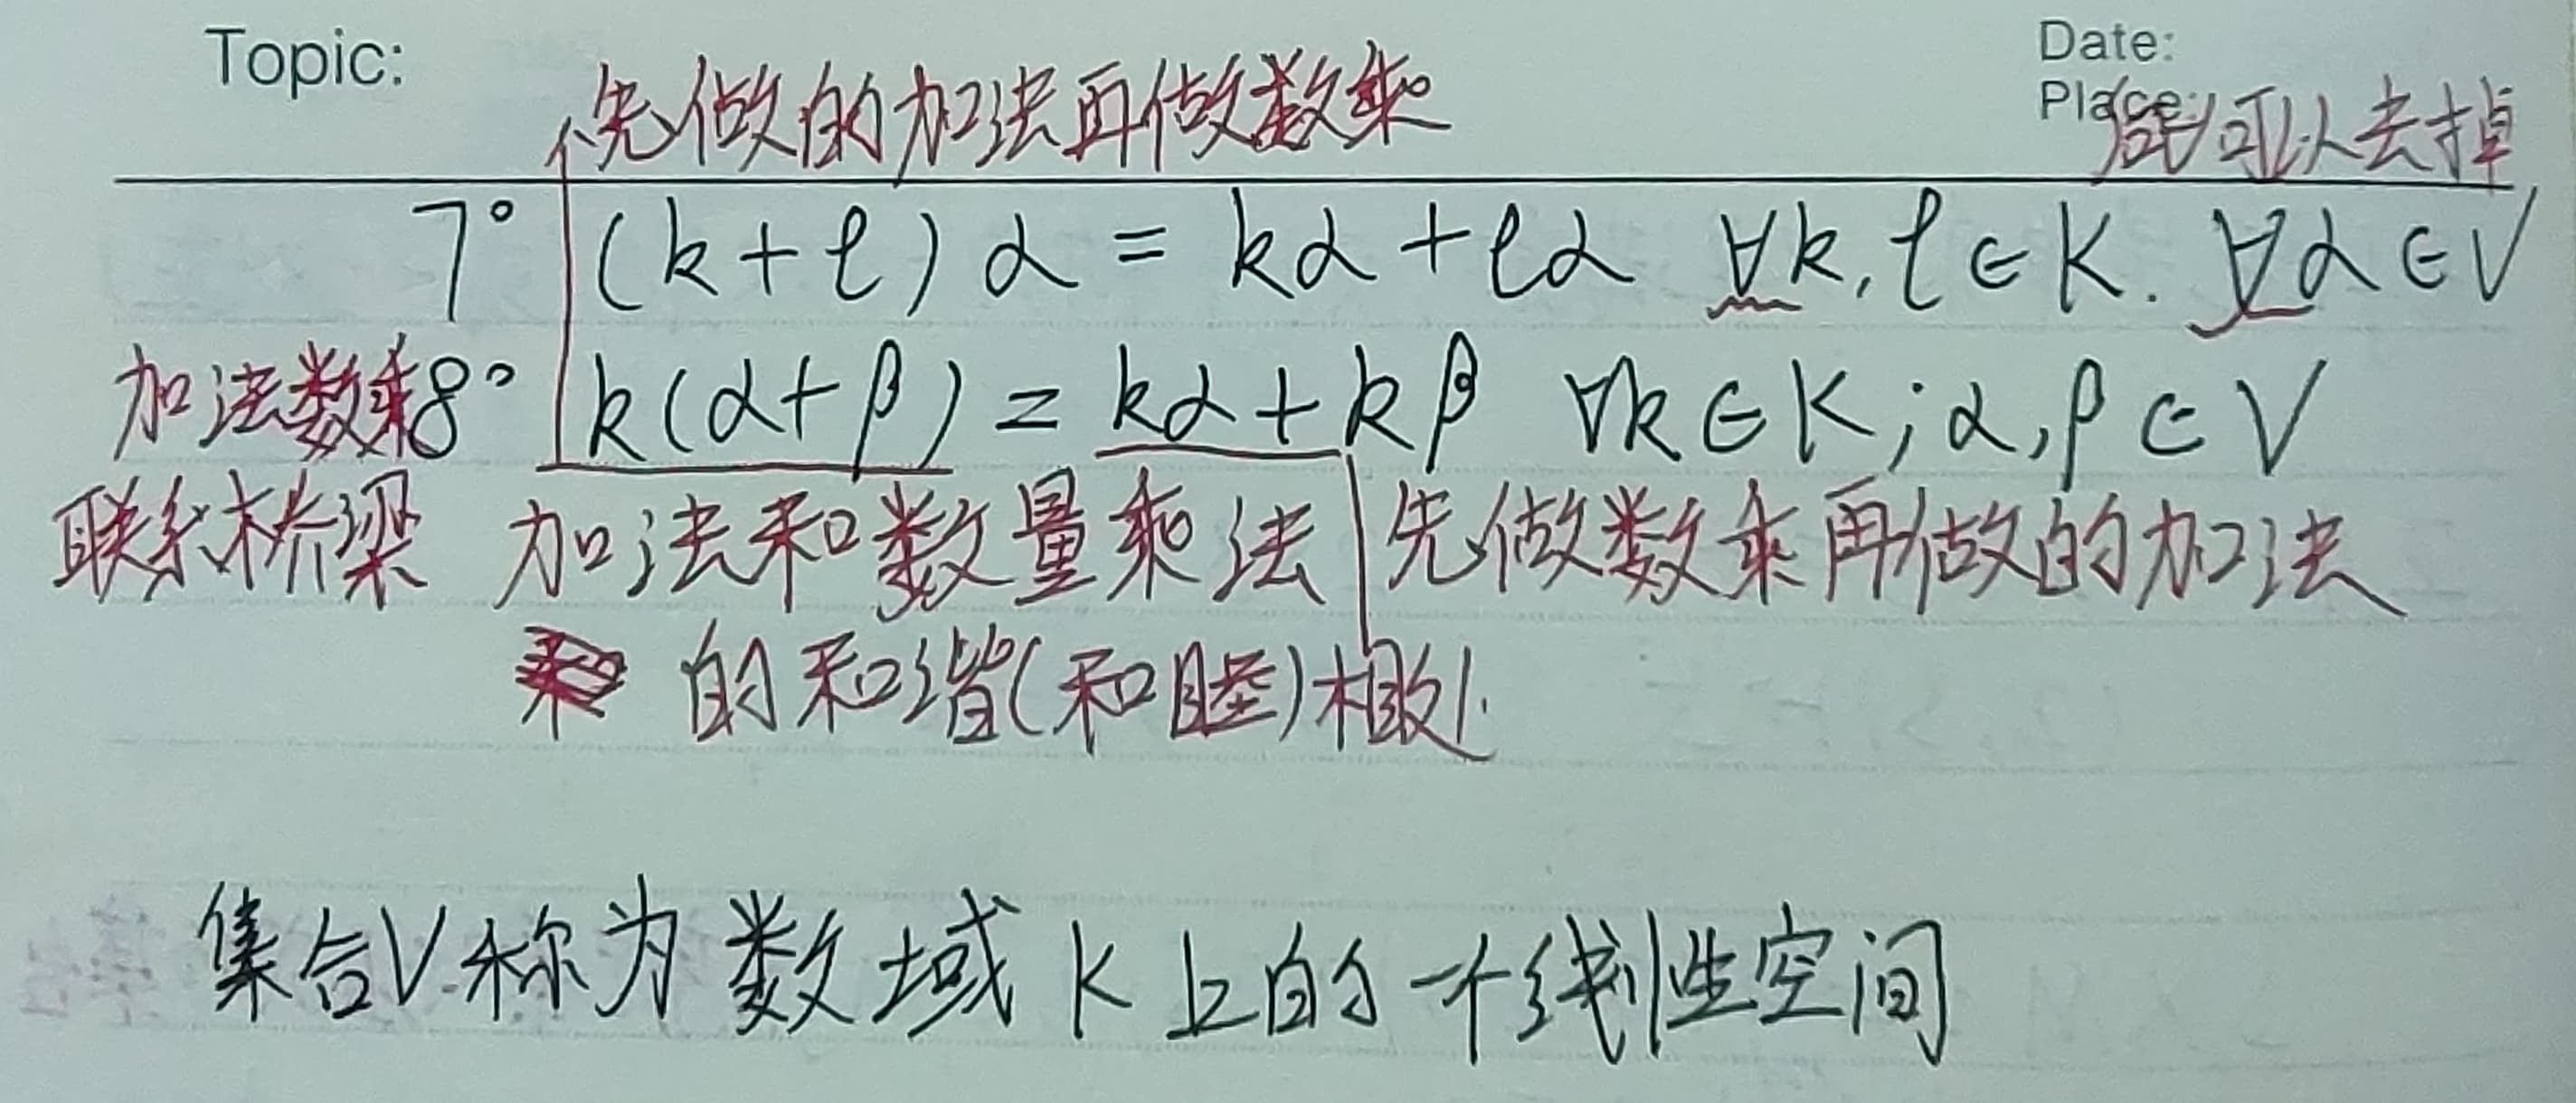 Topic:
Date:
Place:
先做的加法再做数乘
都可以去掉
7° (k+l)α = kα+lα ∀k,l∈K. ∀α∈V
加法数乘 8° k(α+β) = kα+kβ ∀k∈K;α,β∈V
联系桥梁 加法和数量乘法 先做数乘再做的加法
的和谐(和睦)相处.
集合V称为数域K上的一个线性空间